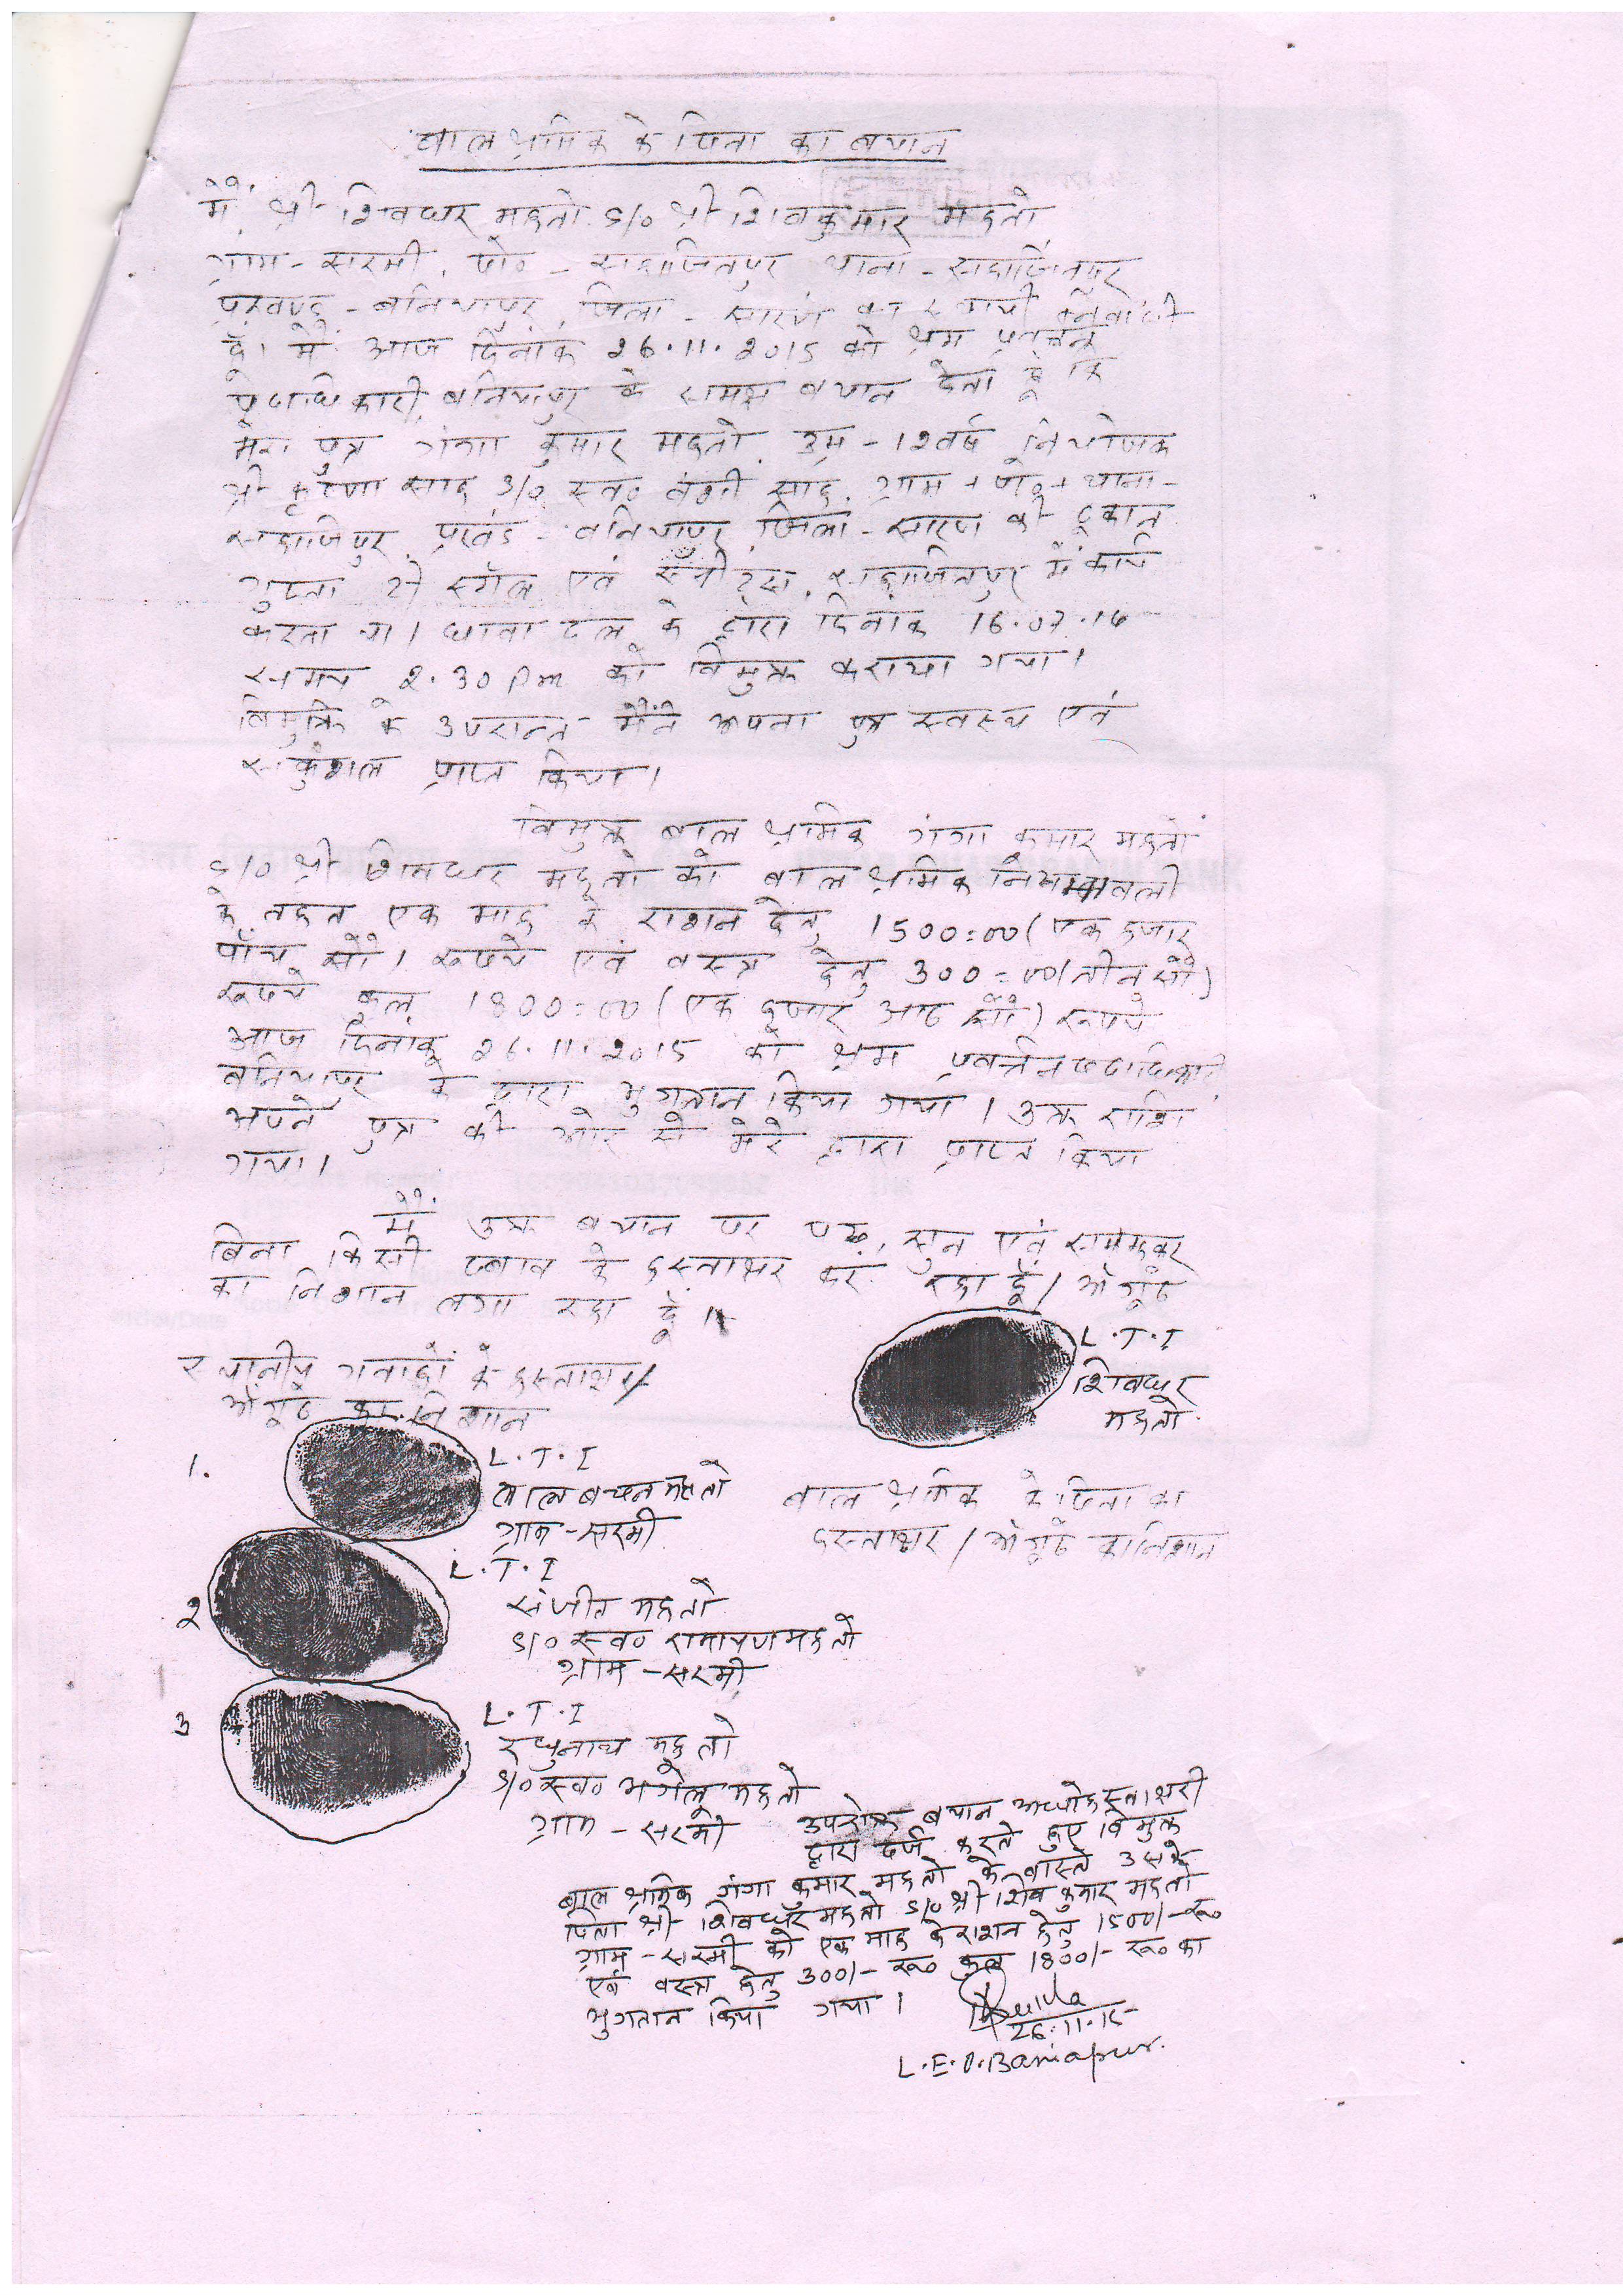 बाल श्रमिक के पिता का बयान
मैं श्री शिवधर महतो S/o श्री शिवकुमार महतो
ग्राम - सरमी, पो० - सहाजितपुर थाना - सहाजितपुर
प्रखण्ड - बनियापुर, जिला - सारण का स्थायी निवासी
हूँ। मैं आज दिनांक 26.11.2015 को श्रम प्रवर्त्तन
पदाधिकारी, बनियापुर के समक्ष बयान देता हूँ कि
मेरा पुत्र गंगा कुमार महतो, उम्र - 12 वर्ष नियोजक
श्री कृष्णा साह S/o स्व० बंशी साह, ग्राम + पो० + थाना -
सहाजिपुर, प्रखंड - बनियापुर, जिला - सारण की दूकान
गुप्ता टी स्टॉल एवं स्वीट्स, सहाजितपुर में कार्य
करता था। धावा दल के द्वारा दिनांक 16.07.14
समय 2.30 Pm को विमुक्त कराया गया।
विमुक्ति के उपरान्त मैंने अपना पुत्र स्वस्थ एवं
सकुशल प्राप्त किया।
विमुक्त बाल श्रमिक गंगा कुमार महतो
S/o श्री शिवधर महतो को बाल श्रमिक नियमावली
के तहत एक माह के राशन हेतु 1500=00 (एक हजार
पाँच सौ) रूपये एवं वस्त्र हेतु 300=00 (तीन सौ)
रूपये कुल 1800=00 (एक हजार आठ सौ) रूपये
आज दिनांक 26.11.2015 को श्रम प्रवर्त्तन पदाधिकारी
बनियापुर के द्वारा भुगतान किया गया। उक्त राशि
अपने पुत्र की ओर से मेरे द्वारा प्राप्त किया
गया।
मैं उक्त बयान पर पढ़, सुन एवं समझकर
बिना किसी दबाव के हस्ताक्षर कर रहा हूँ / अँगूठे
का निशान लगा रहा हूँ।
L.T.I
शिवधर
महतो
स्थानीय गवाहों के हस्ताक्षर/
अँगूठे का निशान
1. L.T.I
लालबचन महतो
ग्राम - सरमी
बाल श्रमिक के पिता का
हस्ताक्षर / अँगूठे का निशान
2 L.T.I
संजीत महतो
S/o स्व० रामायण महतो
ग्राम - सरमी
3 L.T.I
रघुनाथ महतो
S/o स्व० भगेलू महतो
ग्राम - सरमी
उपरोक्त बयान अधोहस्ताक्षरी
द्वारा दर्ज करते हुए विमुक्त
बाल श्रमिक गंगा कुमार महतो के वास्ते उसके
पिता श्री शिवधर महतो S/o श्री शिव कुमार महतो
ग्राम - सरमी को एक माह के राशन हेतु 1500/- रू०
एवं वस्त्र हेतु 300/- रू० कुल 1800/- रू० का
भुगतान किया गया।
26.11.15
L.E.O. Baniapur.